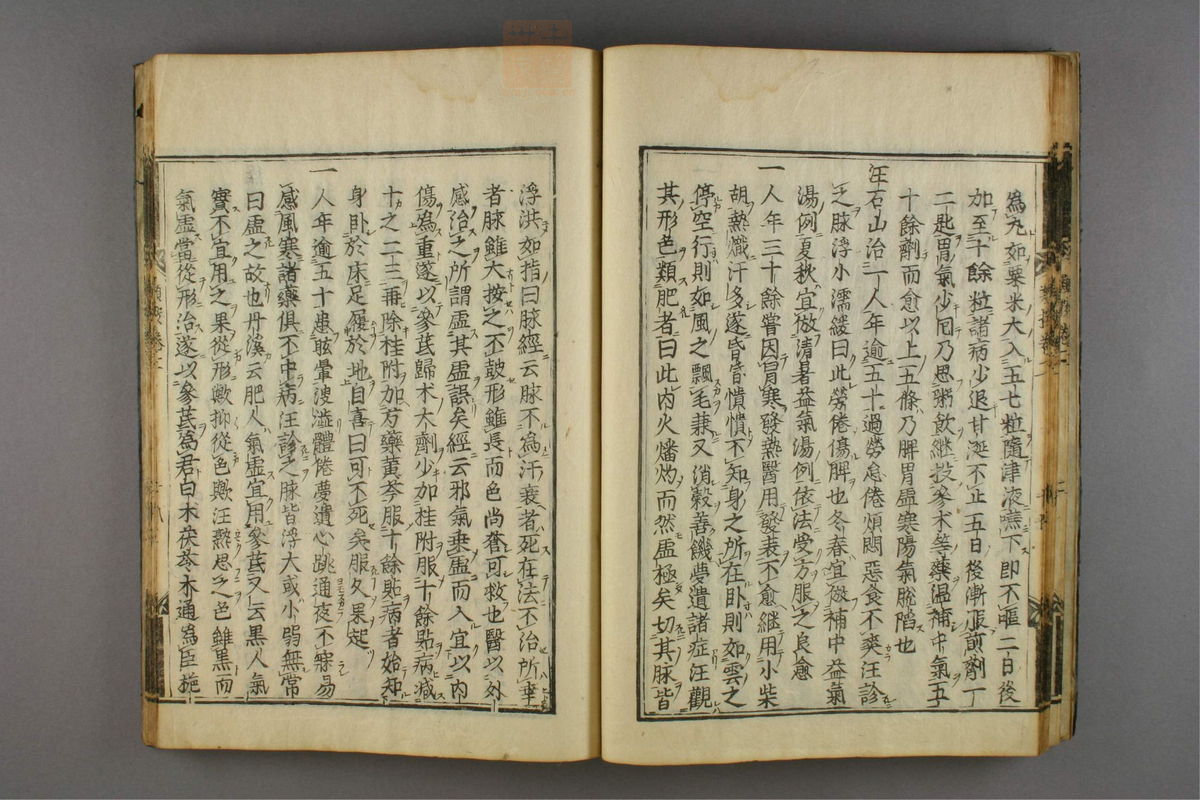 爲丸如粟米大入五七粒隨津液嚥下即不嘔二日後
加至十餘粒諸病少退甘涎不止五日後漸服前劑一
二匙胃氣少回乃思粥飲繼投參朮等藥溫補中氣五
十餘劑而愈以上五條乃脾胃虛寒陽氣脫陷也
汪石山治一人年逾五十過勞怠倦煩悶惡食不爽汪診
之脉浮小濡緩曰此勞倦傷脾也冬春宜倣補中益氣
湯例夏秋宜倣清暑益氣湯例依法受方服之良愈
一人年三十餘嘗因冒寒發熱醫用發表不愈繼用小柴
胡熱熾汗多遂昏昏憒憒不知身之所在卧則如雲之
停空行則如風之飄毛兼又消穀善饑夢遺諸症汪觀
其形色類肥者曰此内火燔灼而然虛極矣切其脉皆
浮洪如指曰脉經云脉不爲汗衰者死在法不治所幸
者脉雖大按之不鼓形雖長而色尚蒼可救也醫以外
感治之所謂虛其虛誤矣經云邪氣乗虛而入宜以内
傷爲重遂以參芪歸朮大劑少加桂附服十餘貼病减
十之二三再除桂附加芍藥黄芩服十餘貼病者始知
身卧於床足履於地自喜曰可不死矣服久果起
一人年逾五十患眩暈溏溢體倦夢遺心跳通夜不寐易
感風寒諸藥俱不中病汪診之脉皆浮大或小弱無常
曰虛之故也丹溪云肥人氣虛宜用參芪又云黒人氣
實不宜用之果從形歟抑從色歟汪熟思之色雖黒而
氣虛當從形治遂以參芪爲君白朮茯苓木通爲臣梔